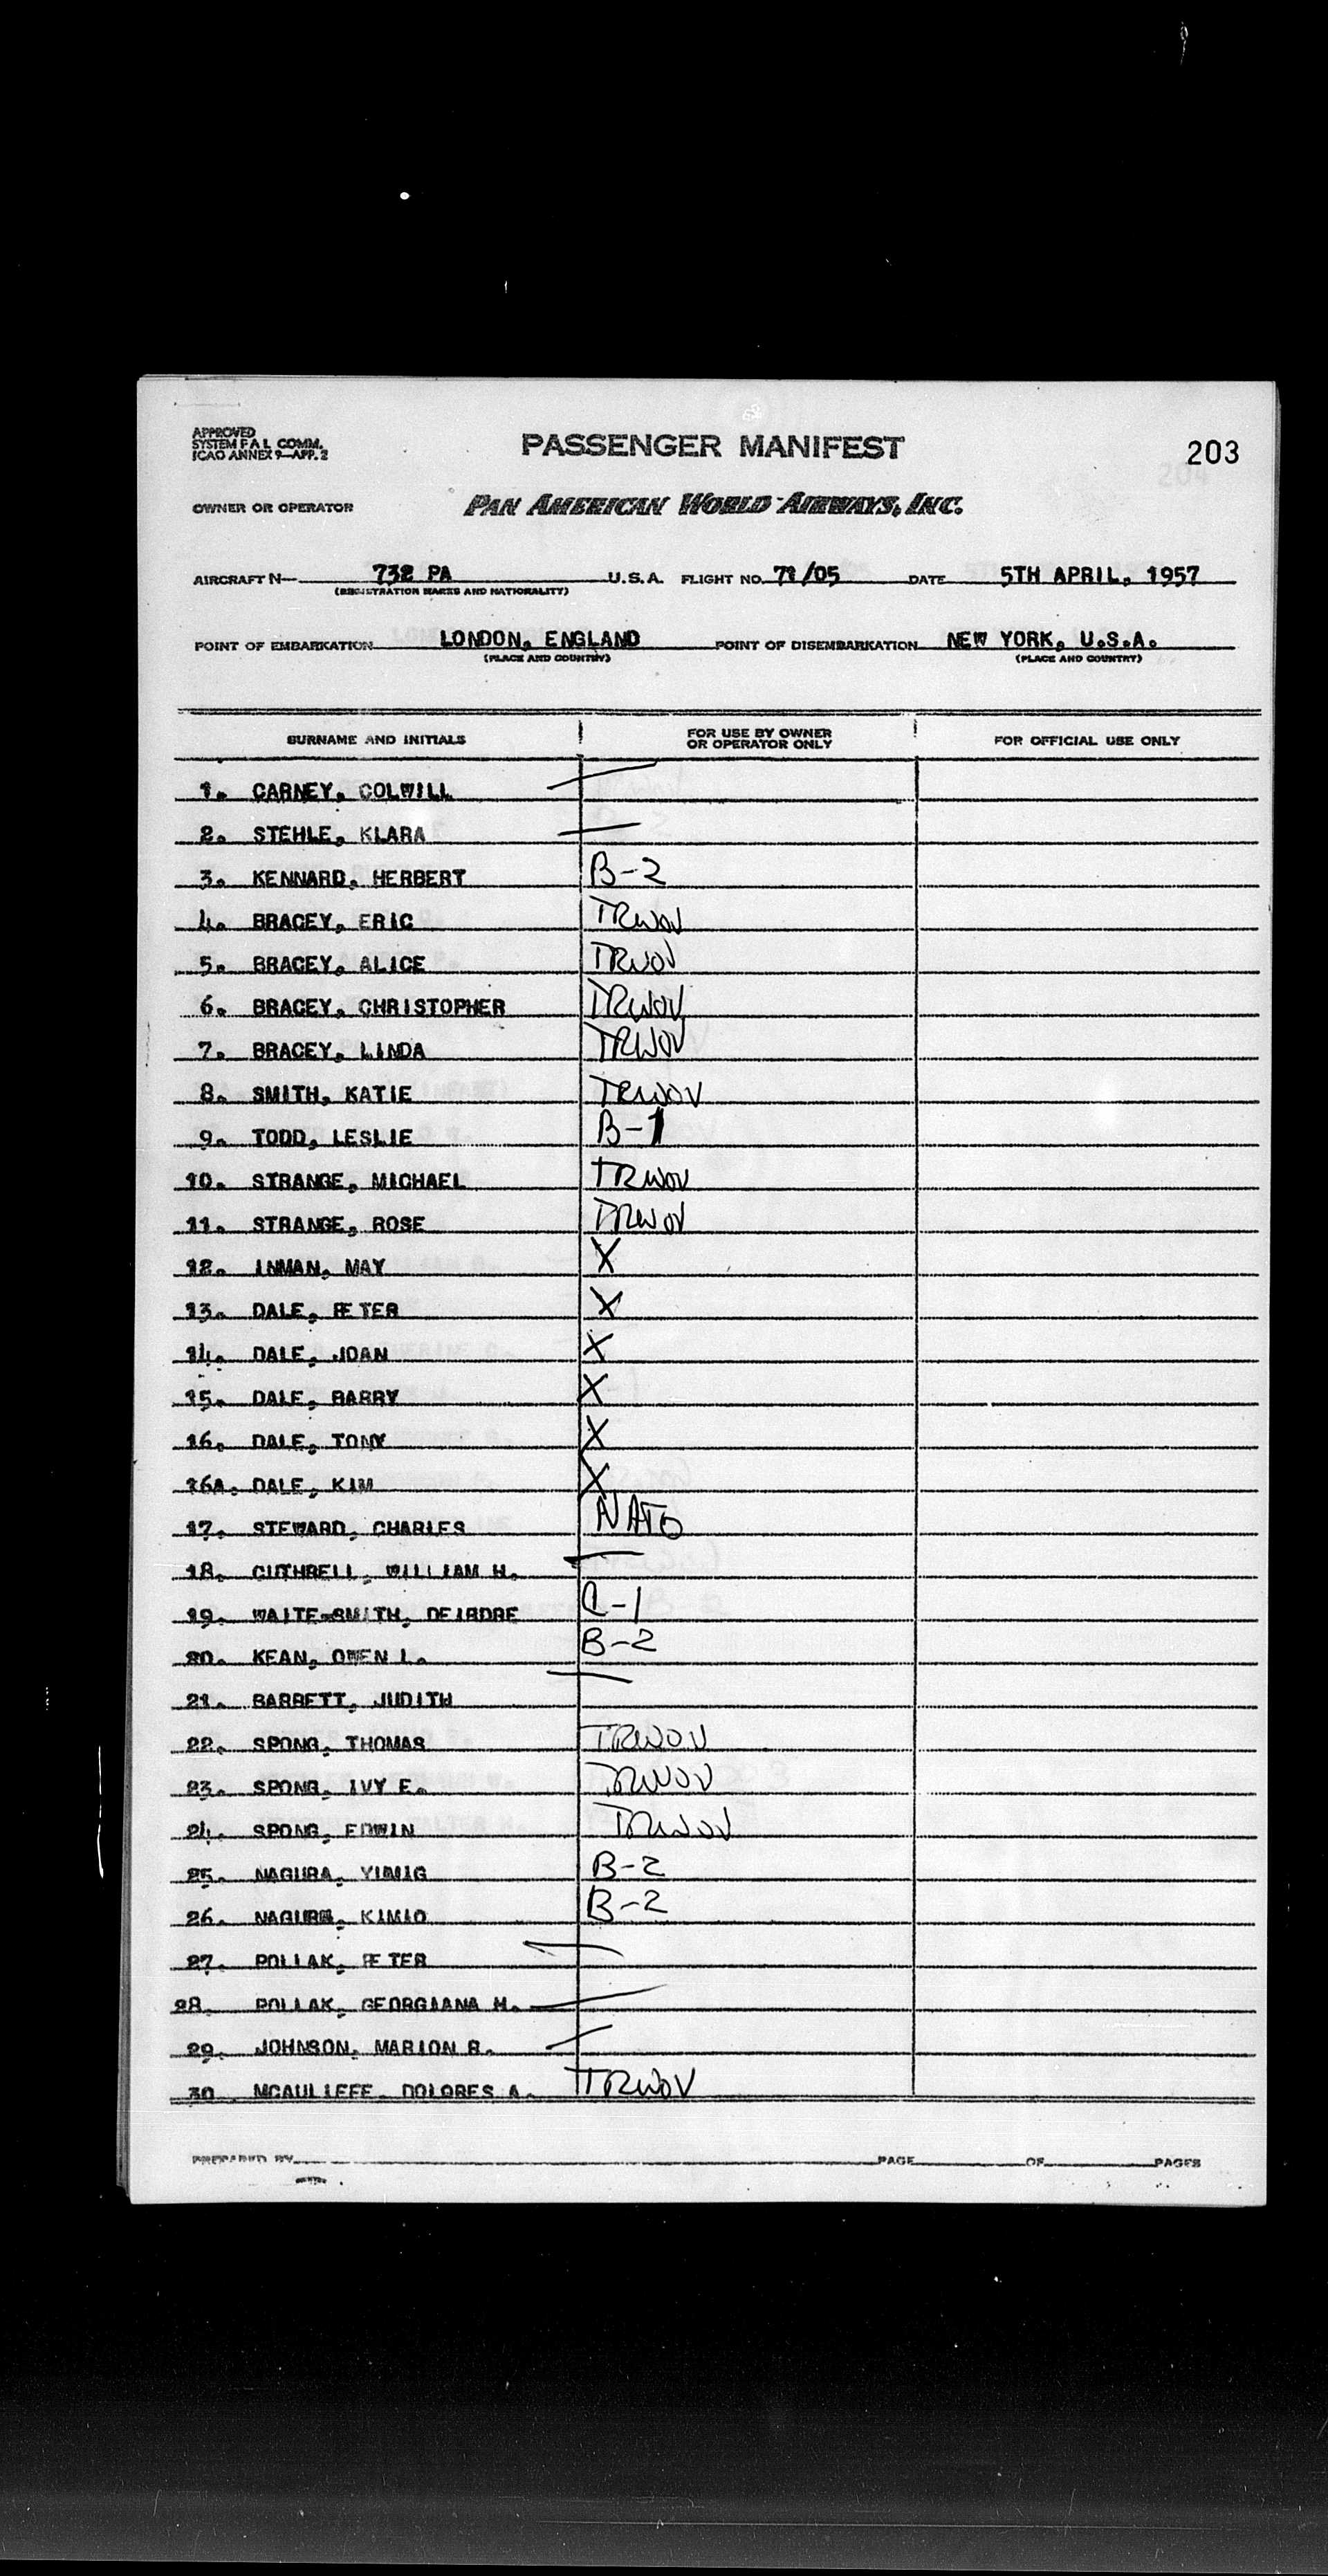 APPROVED
SYSTEM F A L COMM.
ICAO ANNEX 9—APP. 2
PASSENGER MANIFEST
203
OWNER OR OPERATOR PAN AMERICAN WORLD AIRWAYS, INC.
AIRCRAFT N— 732 PA U.S.A. FLIGHT NO. 71/05 DATE 5TH APRIL, 1957
(REGISTRATION MARKS AND NATIONALITY)
POINT OF EMBARKATION LONDON, ENGLAND POINT OF DISEMBARKATION NEW YORK, U.S.A.
(PLACE AND COUNTRY) (PLACE AND COUNTRY)
SURNAME AND INITIALS FOR USE BY OWNER OR OPERATOR ONLY FOR OFFICIAL USE ONLY
1. CARNEY, COLWILL —
2. STEHLE, KLARA —
3. KENNARD, HERBERT B-2
4. BRACEY, ERIC TRWOV
5. BRACEY, ALICE TRWOV
6. BRACEY, CHRISTOPHER TRWOV
7. BRACEY, LINDA TRWOV
8. SMITH, KATIE TRWOV
9. TODD, LESLIE B-1
10. STRANGE, MICHAEL TRWOV
11. STRANGE, ROSE TRWOV
12. INMAN, MAY X
13. DALE, PETER X
14. DALE, JOAN X
15. DALE, BARRY X
16. DALE, TONY X
16A. DALE, KIM X
17. STEWARD, CHARLES NATO
18. CUTHRELL, WILLIAM H. —
19. WAITE-SMITH, DEIRDRE C-1
20. KEAN, OWEN L. B-2
21. BARRETT, JUDITH —
22. SPONG, THOMAS TRWOV
23. SPONG, IVY E. TRWOV
24. SPONG, EDWIN TRWOV
25. NAGURA, YIMIG B-2
26. NAGURA, KIMIO B-2
27. POLLAK, PETER —
28. POLLAK, GEORGIANA H. —
29. JOHNSON, MARION R. —
30. MCAULIFFE, DOLORES A. TRWOV
PREPARED BY PAGE OF PAGES